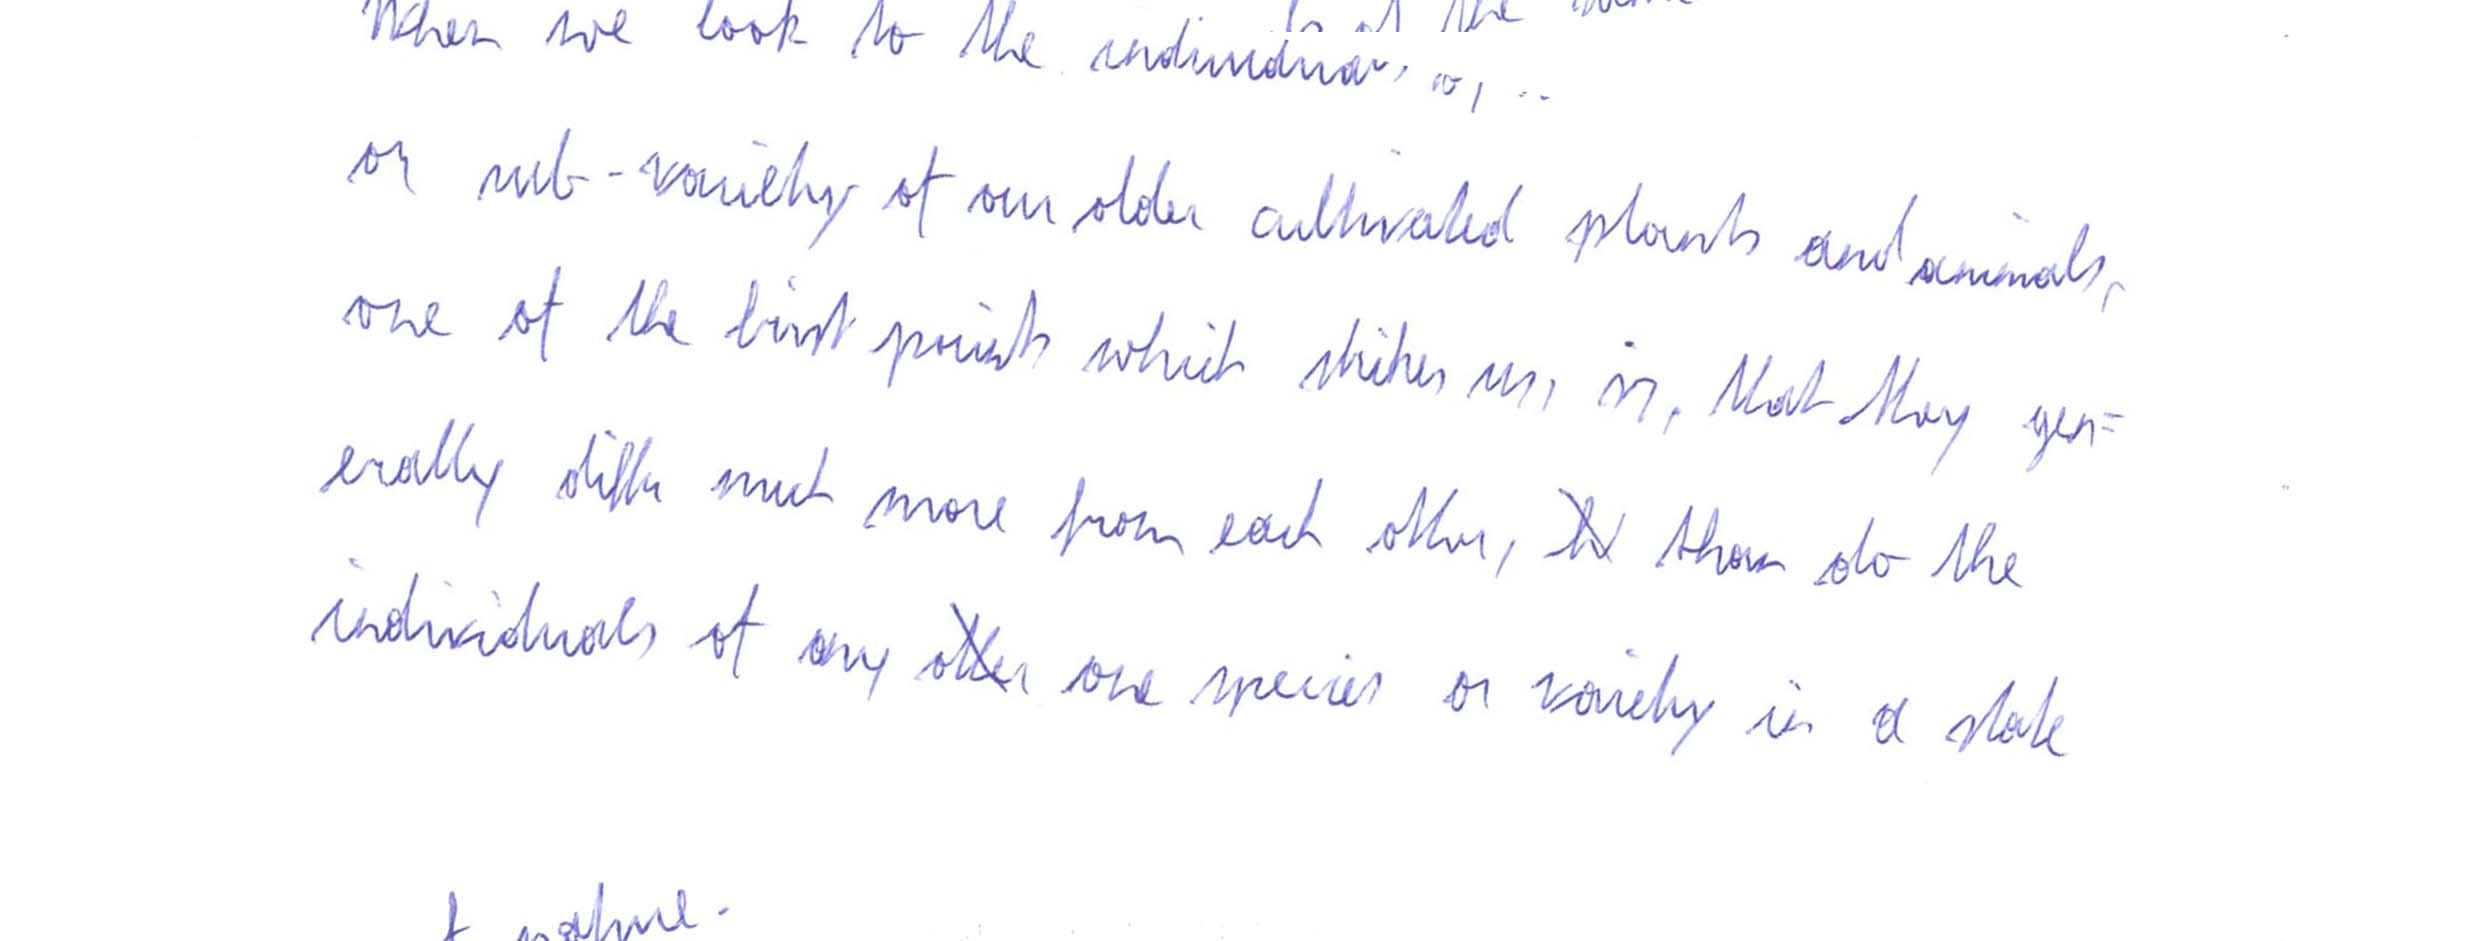 When we look to the
or sub-variety of our older cultivated plants and animals,
one of the first points which strikes us, is, that they gen=
erally differ much more from each other, than do the
individuals of any other one species or variety in a state
nature.